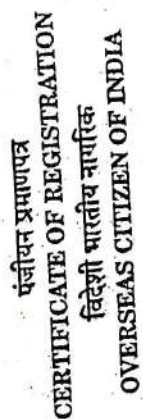 पंजीयन प्रमाणपत्र
CERTIFICATE OF REGISTRATION
विदेशी भारतीय नागरिक
OVERSEAS CITIZEN OF INDIA